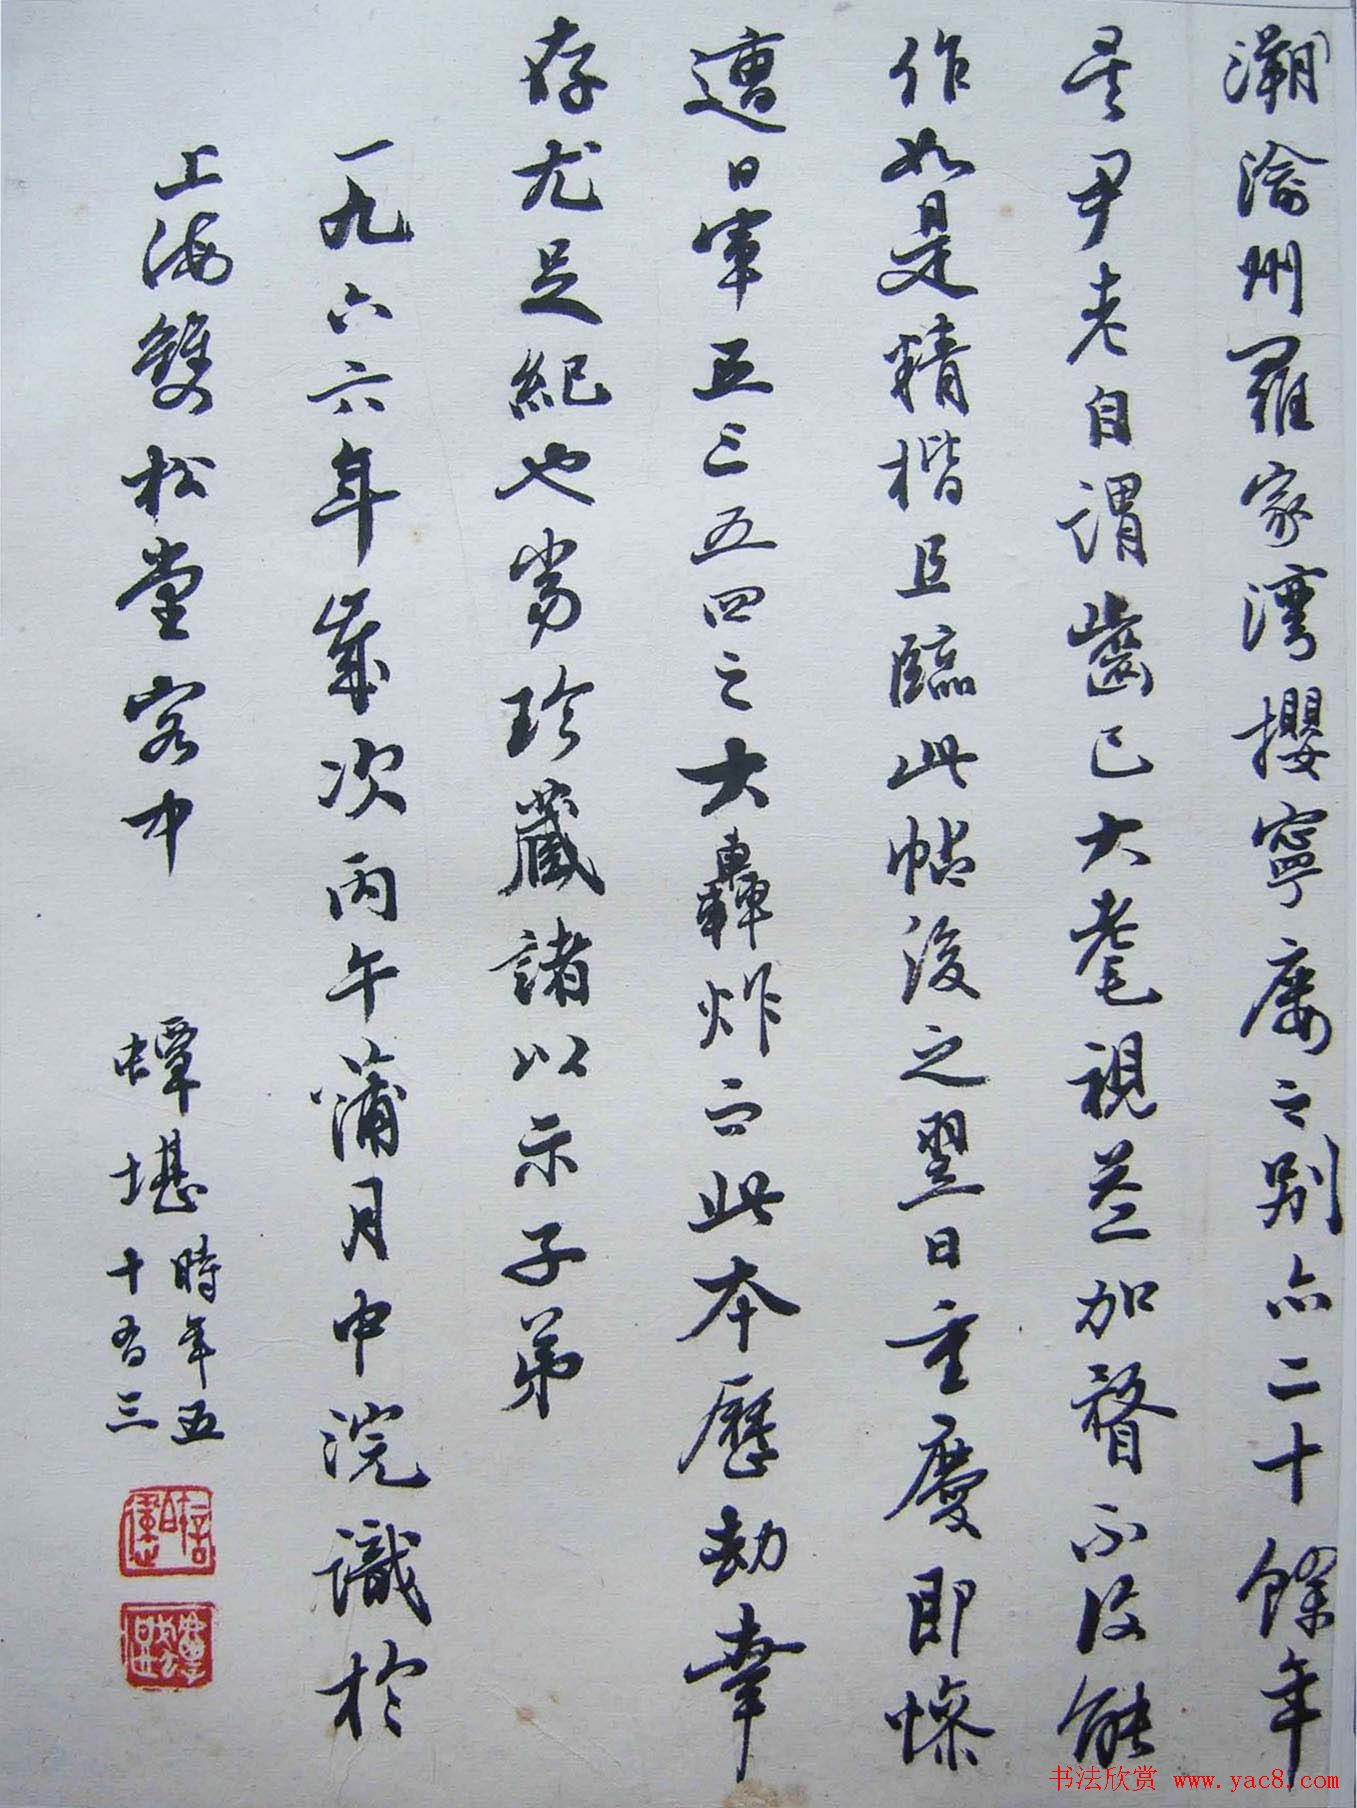 溯渝州羅家灣攖寧廔之別亦二十餘年
矣尹老自謂齒已大耄視茫加瞀不復能
作如是精楷且臨此帖後之翌日重慶即慘
遭日軍五三五四之大轟炸而此本歷劫幸
存尤足紀也耑珍藏諸以示子弟
一九六六年歲次丙午蒲月中浣識於
上海雙松堂客中
蟫堪時年五
十有三
书法欣赏 www.yac8.com